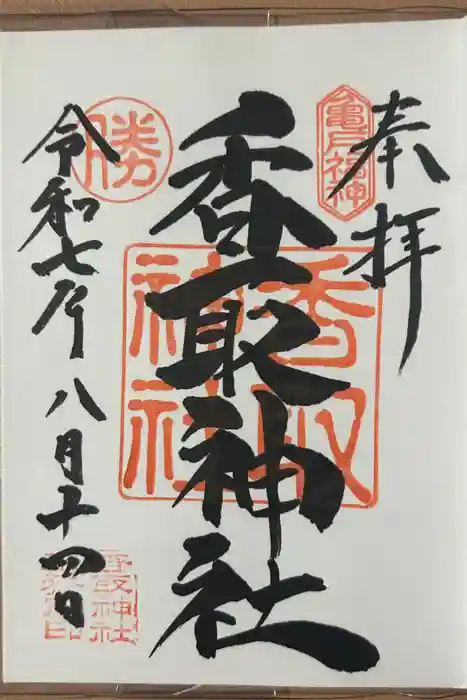 奉拝
亀戸福神
香取神社
香取神社
勝
令和七年八月十四日